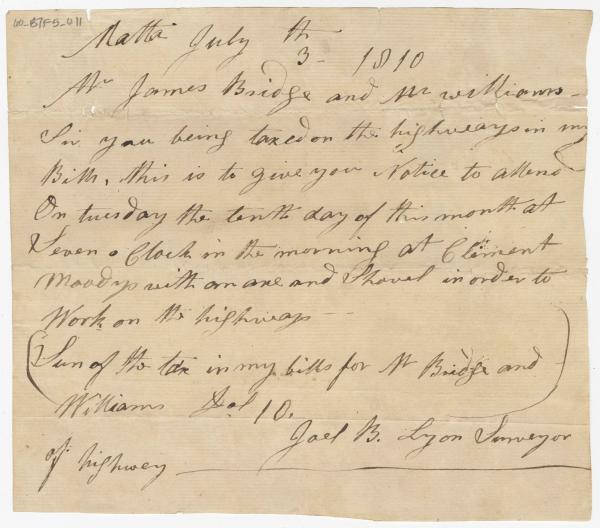 60_B7F5_U11
Matta July th
3 - 1810
Mr James Bridge and Mr williams -
Sir you being taxed on the highways in my
Bills, this is to give you Notice to attend
On tuesday the tenth day of this month at
Seven o Clock in the morning at Clement
Moodys with an axe and Shovel in order to
Work on the highways -
(Sum of the tax in my bills for Mr Bridge and
Williams Dol 10.)
Joel B. Lyon Surveyor
of highwey